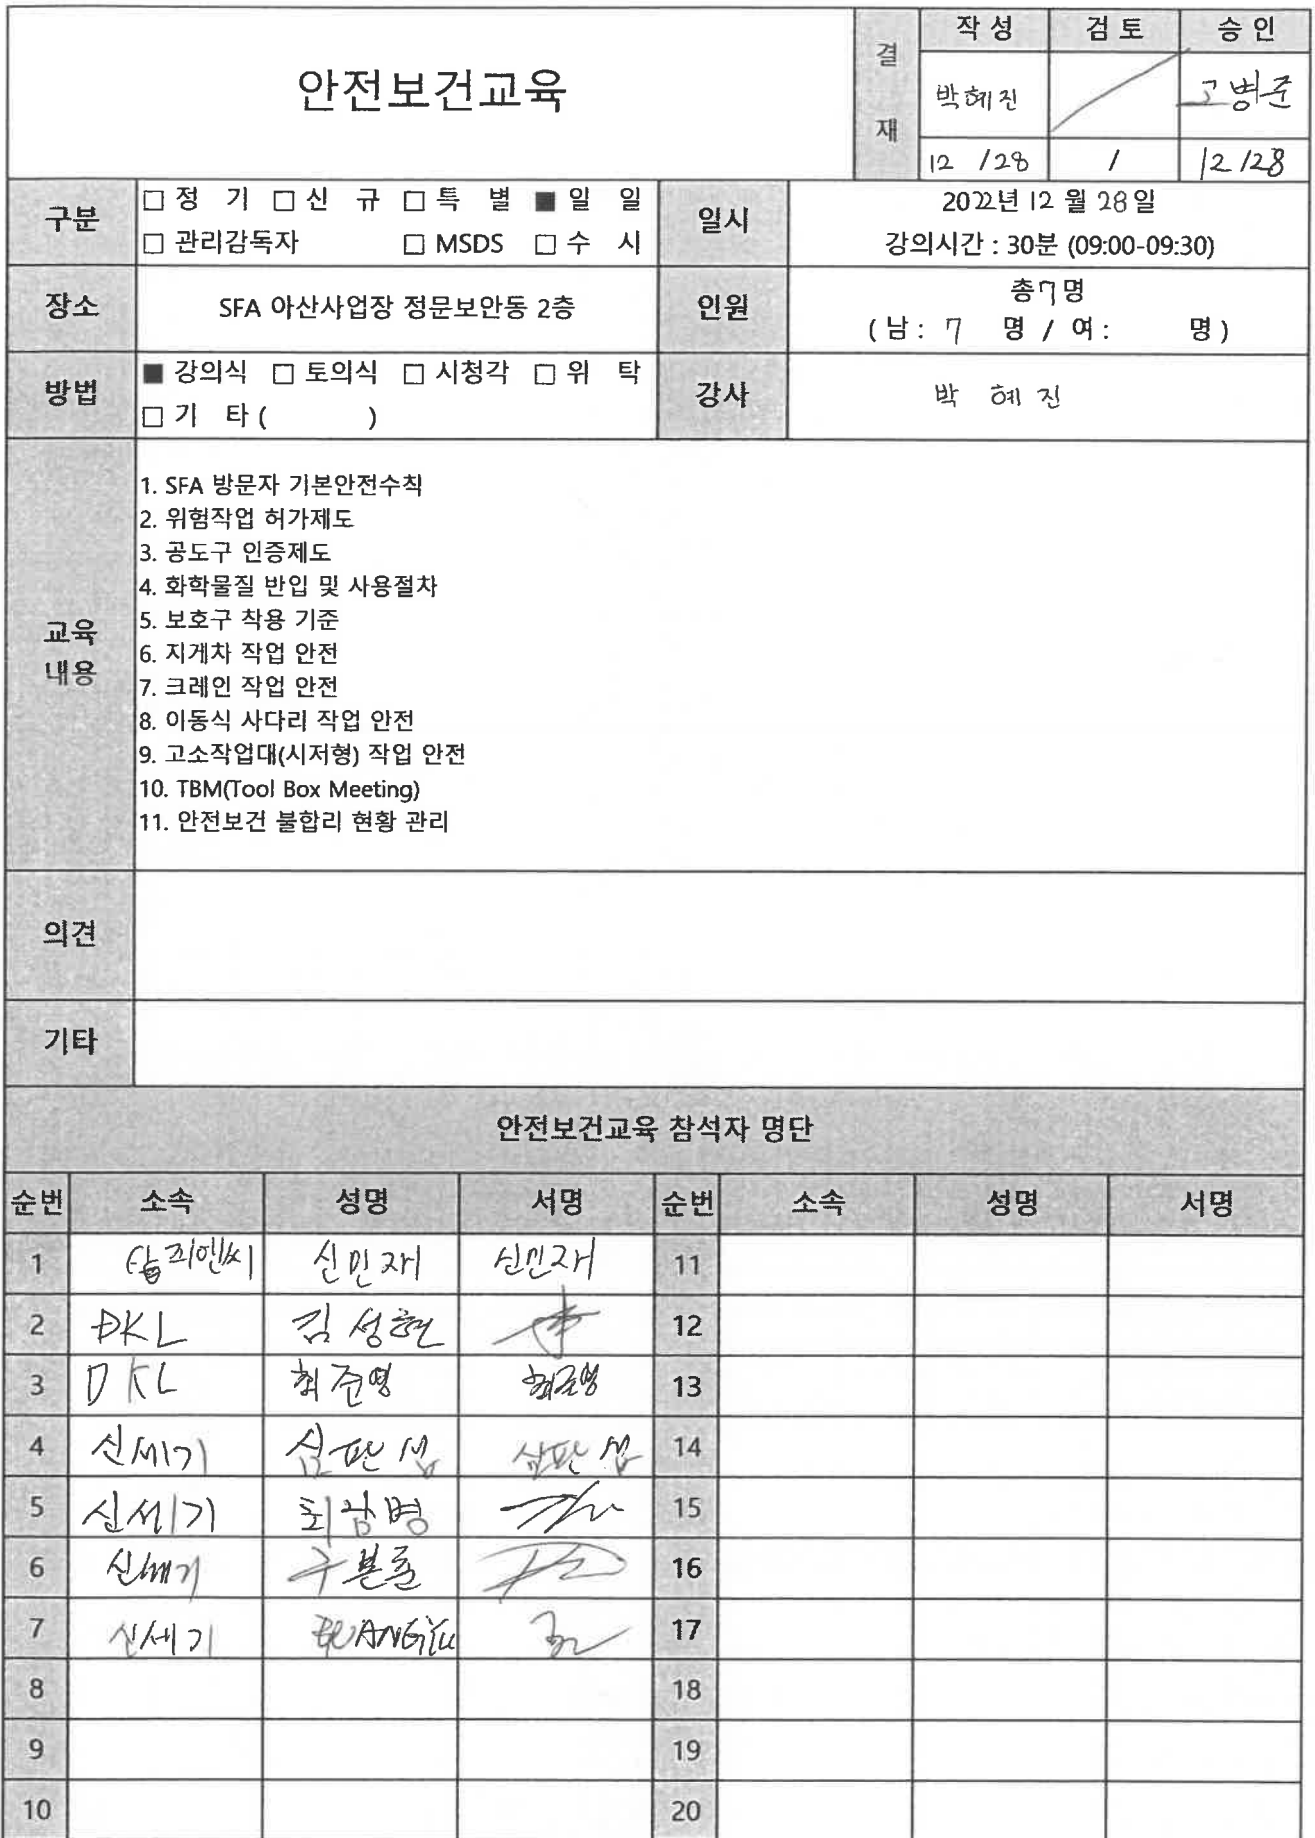 안전보건교육
결재
작 성 검 토 승 인
박혜진 고병준
12 /28 / 12 /28
구분
□ 정 기 □ 신 규 □ 특 별 ■ 일 일
□ 관리감독자 □ MSDS □ 수 시
일시
2022년 12 월 28일
강의시간 : 30분 (09:00-09:30)
장소
SFA 아산사업장 정문보안동 2층
인원
총7명
( 남 : 7 명 / 여 : 명 )
방법
■ 강의식 □ 토의식 □ 시청각 □ 위 탁
□ 기 타 ( )
강사
박 혜 진
교육
내용
1. SFA 방문자 기본안전수칙
2. 위험작업 허가제도
3. 공도구 인증제도
4. 화학물질 반입 및 사용절차
5. 보호구 착용 기준
6. 지게차 작업 안전
7. 크레인 작업 안전
8. 이동식 사다리 작업 안전
9. 고소작업대(시저형) 작업 안전
10. TBM(Tool Box Meeting)
11. 안전보건 불합리 현황 관리
의견
기타
안전보건교육 참석자 명단
순번 소속 성명 서명 순번 소속 성명 서명
1 신민재 신민재 11
2 DKL 김성현 12
3 DKL 최준영 최준영 13
4 신세기 심판섭 심판섭 14
5 신세기 15
6 신세기 구본준 16
7 신세기 17
8 18
9 19
10 20